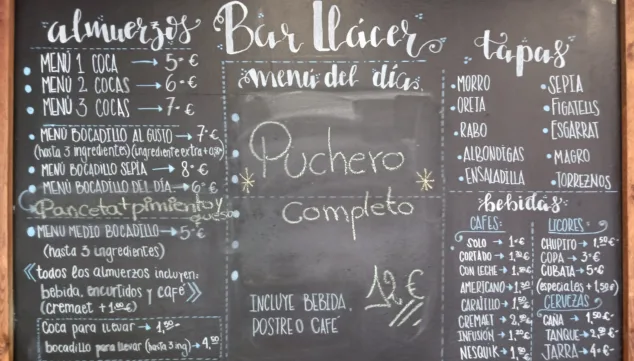 Bar Llácer
almuerzos
MENÚ 1 COCA → 5.€
MENÚ 2 COCAS → 6.€
MENÚ 3 COCAS → 7.€
MENÚ BOCADILLO AL GUSTO → 7.€
(hasta 3 ingredientes) (ingrediente extra +
MENÚ BOCADILLO SEPIA → 8.€
MENÚ BOCADILLO DEL DÍA → 6.€
Panceta + pimiento y
queso
MENÚ MEDIO BOCADILLO → 5.€
(hasta 3 ingredientes)
«todos los almuerzos incluyen:
bebida, encurtidos y café»
(cremaet + 1'00€)
Coca para llevar → 1,50.-
bocadillo para llevar (hasta 3 ing) → 4,50
menú del día
Puchero
completo
12€
INCLUYE BEBIDA,
POSTRE O CAFÉ
tapas
• MORRO
OREJA
• RABO
• ALBONDIGAS
• ENSALADILLA
• SEPIA
• FIGATELLS
• ESGARRAT
• MAGRO
• TORREZNOS
bebidas
CAFÉS:
SOLO → 1.€
CORTADO →
CON LECHE →
AMERICANO →
CARAJILLO →
CREMAET →
INFUSIÓN →
NESQUIK →
LICORES:
CHUPITO → 1,50€-
COPA → 3.€
CUBATA → 5.€
(especiales + 1,50€)
CERVEZAS
CAÑA → 1,50€-
TANQUE → 2,50€-
JARRA → 4.€-